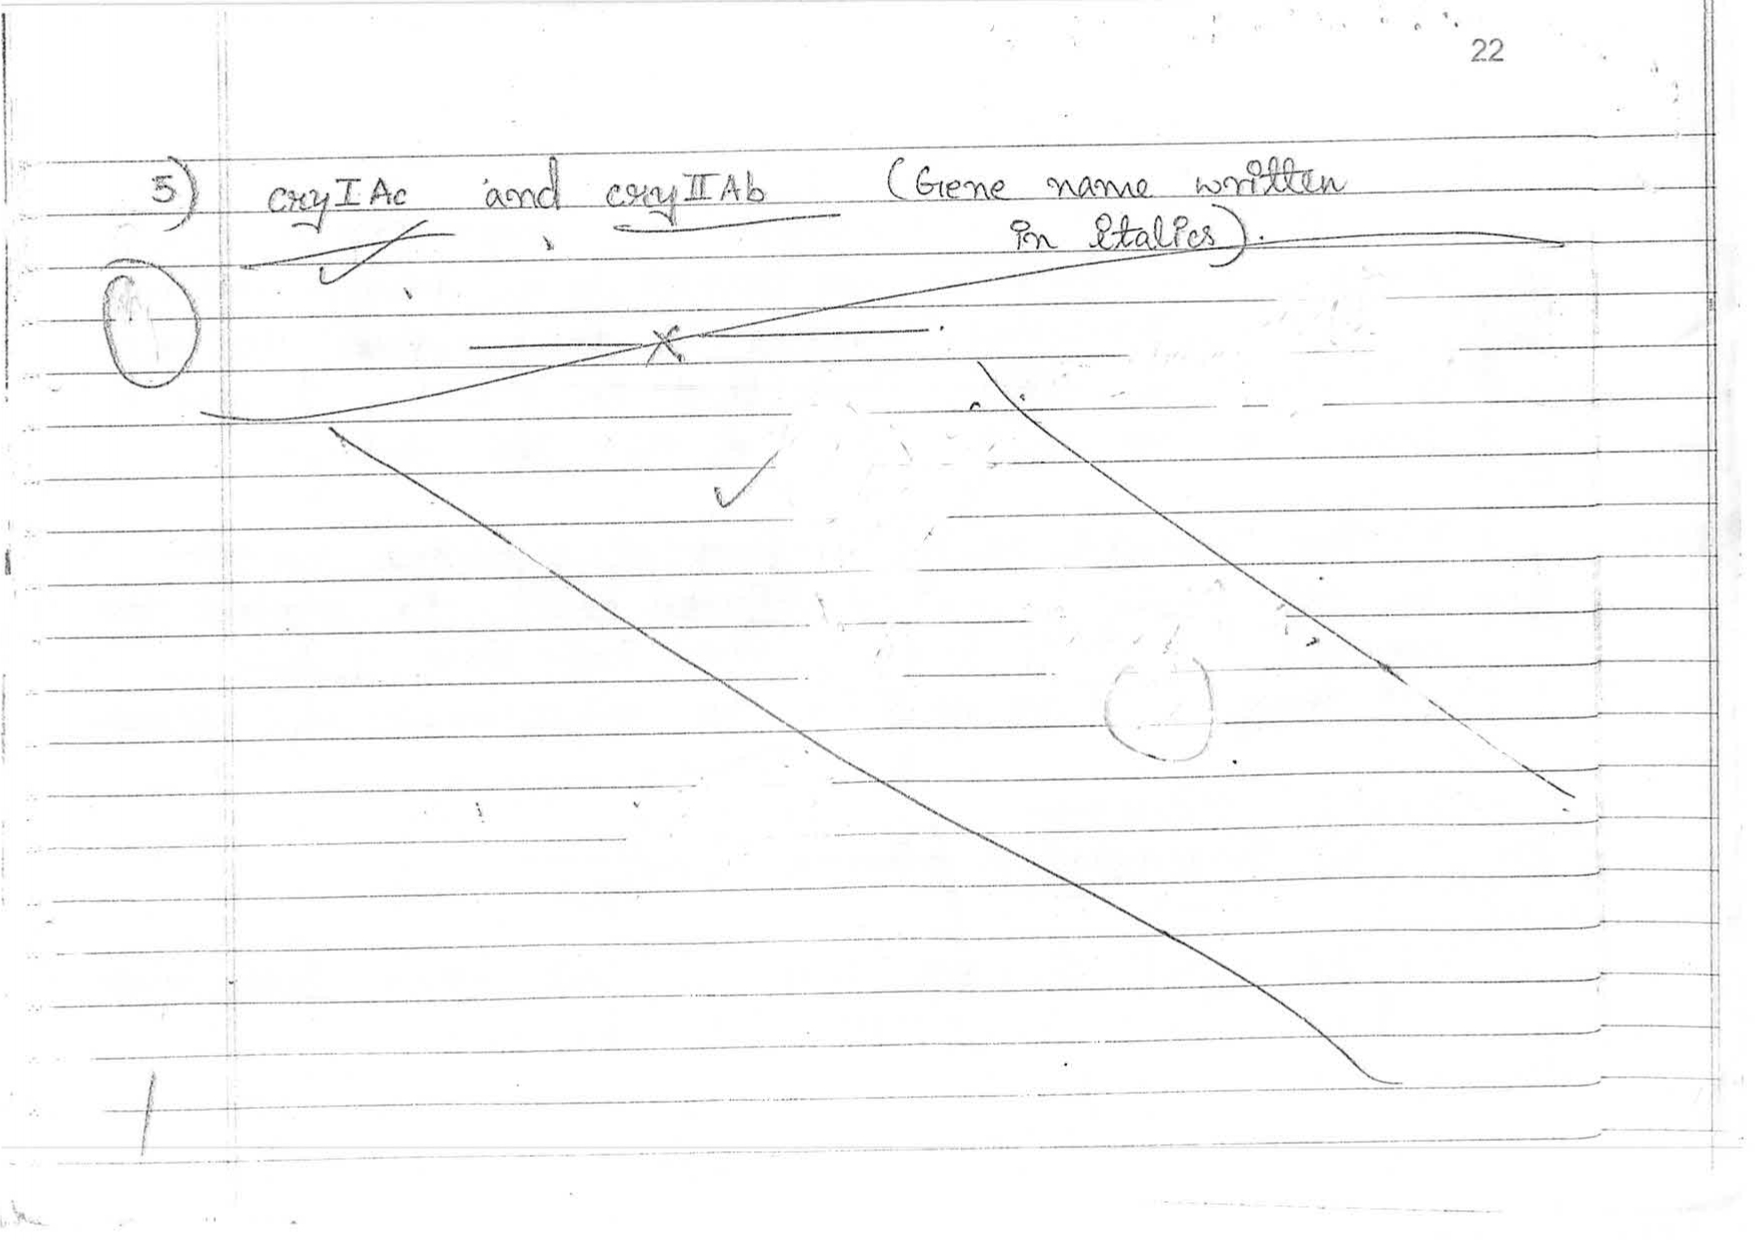 22
5) cryIAc and cryIIAb (Gene name written
in italics).